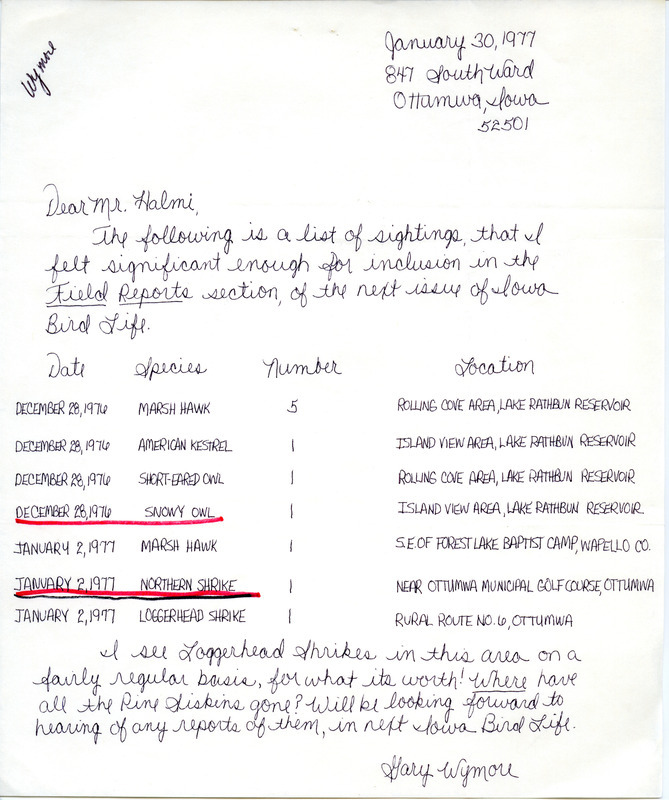 Wymore
January 30, 1977
847 South Ward
Ottumwa, Iowa
52501
Dear Mr. Halmi,
The following is a list of sightings, that I
felt significant enough for inclusion in the
Field Reports section, of the next issue of Iowa
Bird Life.
Date Species Number Location
DECEMBER 28, 1976 MARSH HAWK 5 ROLLING COVE AREA, LAKE RATHBUN RESERVOIR
DECEMBER 28, 1976 AMERICAN KESTREL 1 ISLAND VIEW AREA, LAKE RATHBUN RESERVOIR
DECEMBER 28, 1976 SHORT-EARED OWL 1 ROLLING COVE AREA, LAKE RATHBUN RESERVOIR
DECEMBER 28, 1976 SNOWY OWL 1 ISLAND VIEW AREA, LAKE RATHBUN RESERVOIR
JANUARY 2, 1977 MARSH HAWK 1 S.E. OF FOREST LAKE BAPTIST CAMP, WAPELLO CO.
JANUARY 2, 1977 NORTHERN SHRIKE 1 NEAR OTTUMWA MUNICIPAL GOLF COURSE, OTTUMWA
JANUARY 2, 1977 LOGGERHEAD SHRIKE 1 RURAL ROUTE NO. 6, OTTUMWA
I see Loggerhead Shrikes in this area on a
fairly regular basis, for what its worth! Where have
all the Pine Siskins gone? Will be looking forward to
hearing of any reports of them, in next Iowa Bird Life.
Gary Wymore